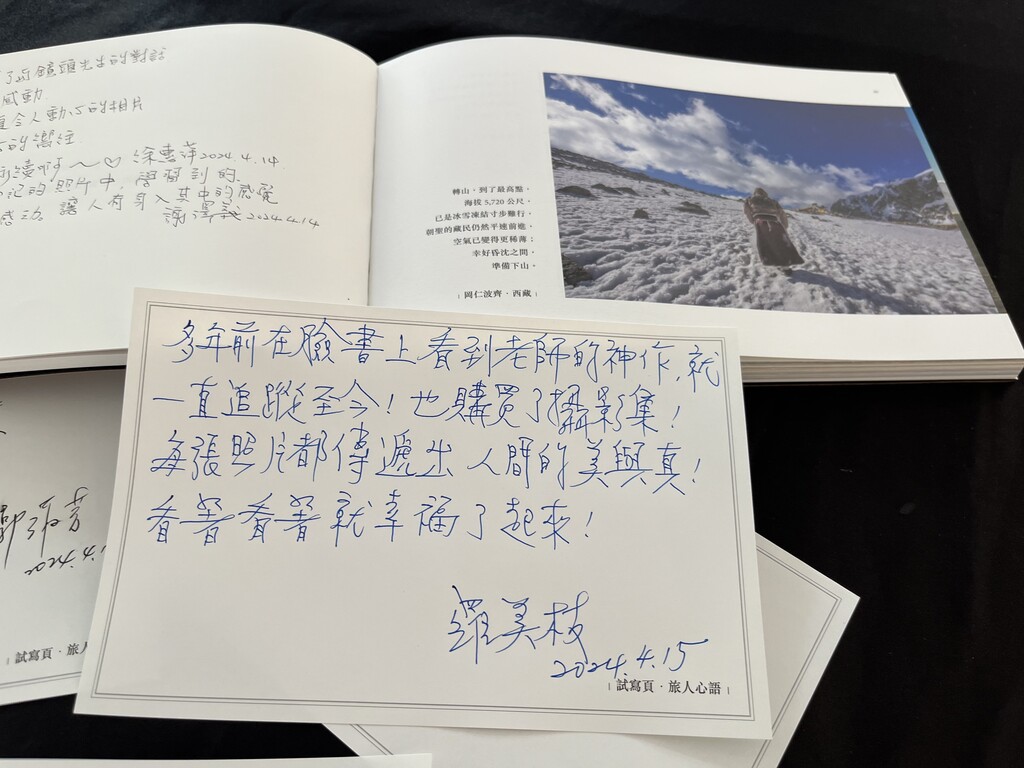 了與鏡頭先生的對話
感動
令人動心的相片
的嚮往
徐惠萍 2024.4.14
的照片中,學習到的.
感动 讓人有身入其中的感覺
2024.4.14
轉山,到了最高點,
海拔 5,720 公尺,
已是冰雪凍結寸步難行,
朝聖的藏民仍然平速前進,
空氣已變得更稀薄;
幸好昏沈之間,
準備下山。
| 岡仁波齊.西藏 |
多年前在臉書上看到老師的神作,就
一直追蹤至今!也購買了攝影集!
每張照片都傳遞出人間的美與真!
看著看著就幸福了起來!
羅美枝
2024.4.15
| 試寫頁.旅人心語 |
| 試寫頁.旅人